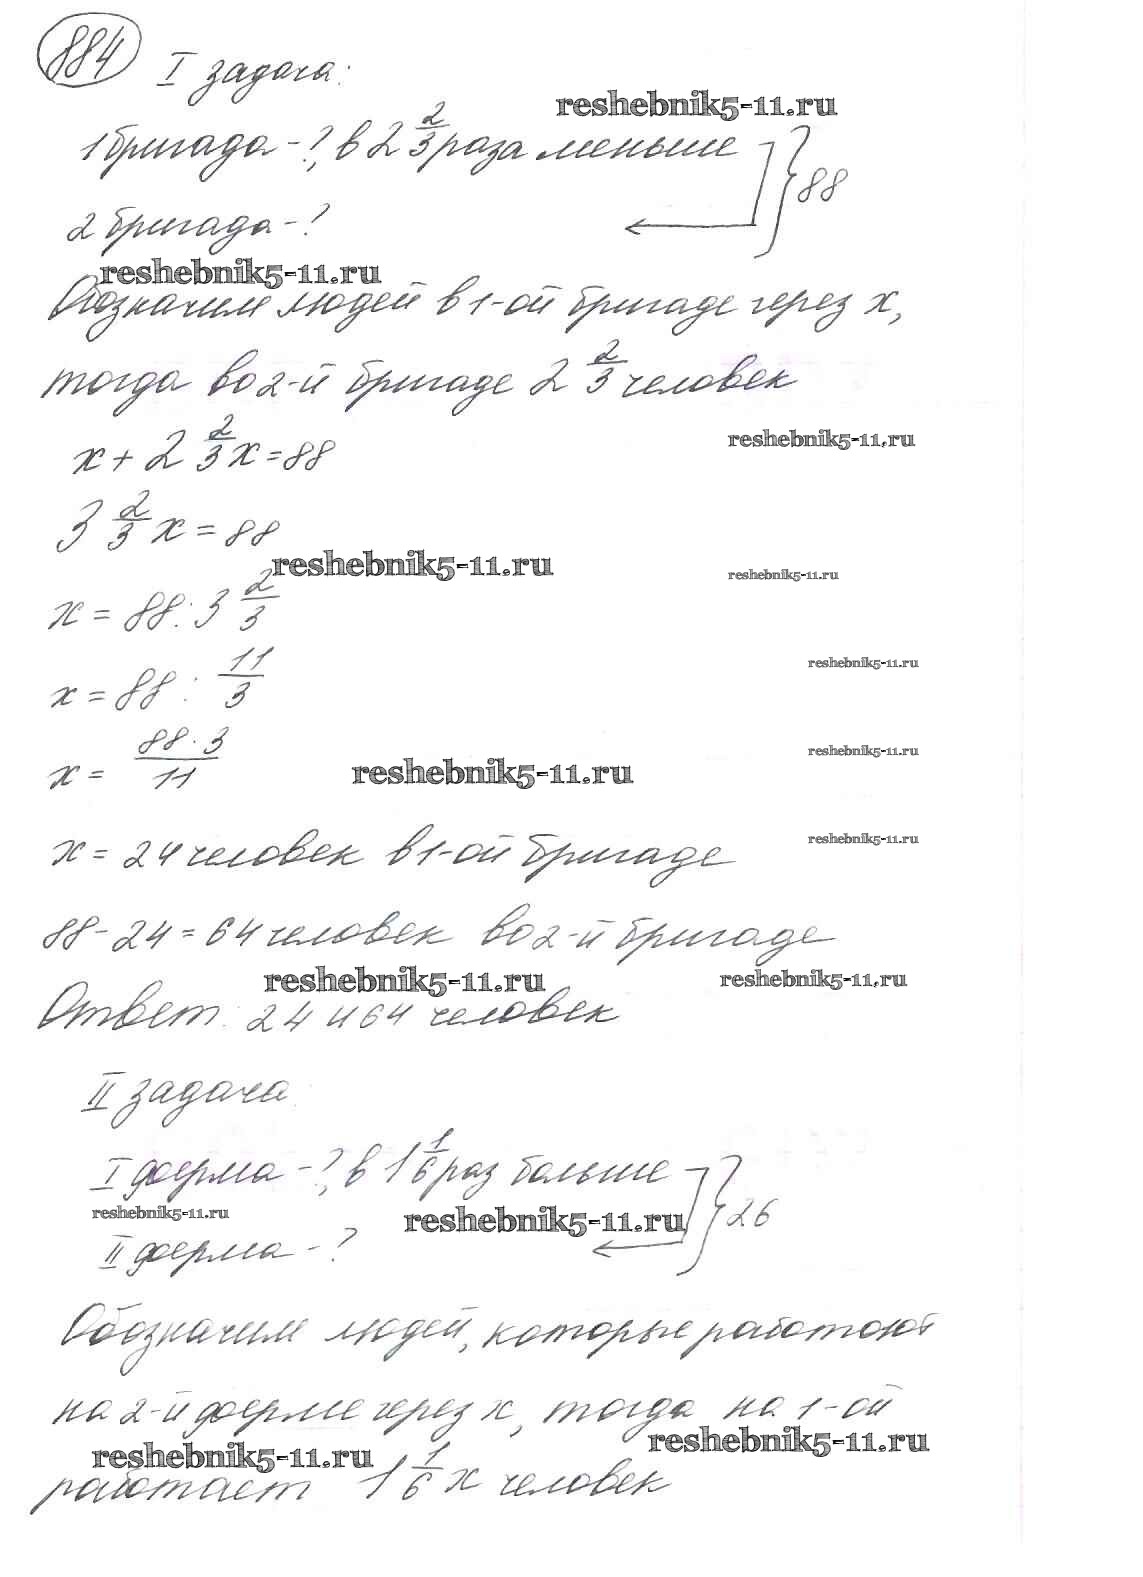 884
I задача:
reshebnik5-11.ru
1 бригада - ?, в 2 2/3 раза меньше
88
2 бригада - ?
reshebnik5-11.ru
Обозначим людей в 1-ой бригаде через x,
тогда во 2-й бригаде 2 2/3 человек
reshebnik5-11.ru
x + 2 2/3 x = 88
3 2/3 x = 88
reshebnik5-11.ru
reshebnik5-11.ru
x = 88 : 3 2/3
reshebnik5-11.ru
x = 88 : 11/3
reshebnik5-11.ru
x = 88 · 3 / 11
reshebnik5-11.ru
reshebnik5-11.ru
x = 24 человек в 1-ой бригаде
88 - 24 = 64 человек во 2-й бригаде
reshebnik5-11.ru
reshebnik5-11.ru
Ответ: 24 и 64 человек
II задача
I ферма - ?, в 1 1/6 раз больше
reshebnik5-11.ru
reshebnik5-11.ru
26
II ферма - ?
Обозначим людей, которые работают
на 2-й ферме через x, тогда на 1-ой
reshebnik5-11.ru
reshebnik5-11.ru
работает 1 1/6 x человек